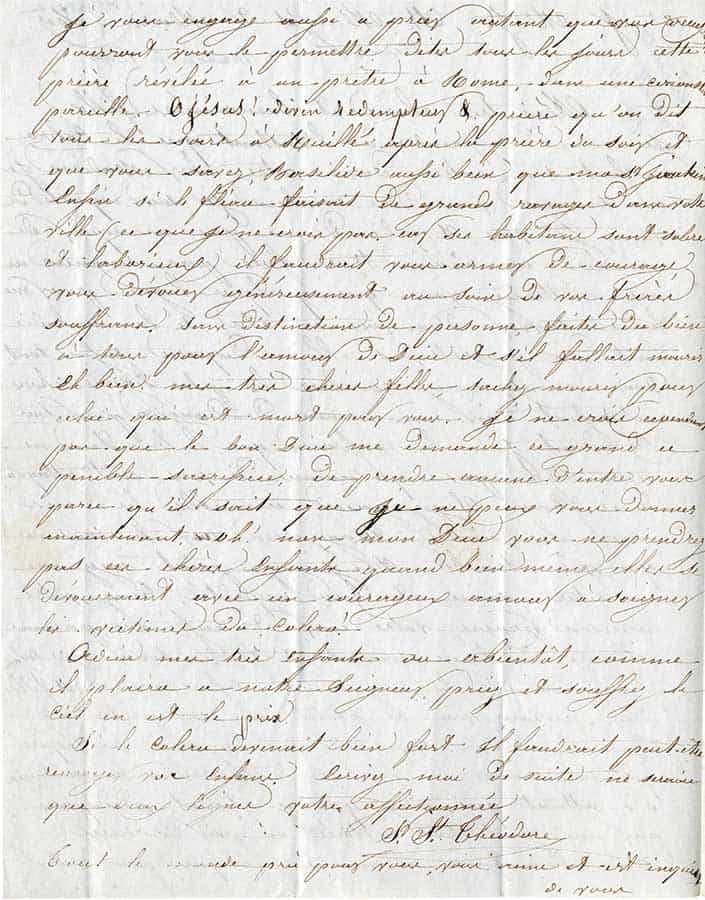 Je vous engage aussi à prier autant que vos
pourront vous le permettre dites tous les jours cette
prière révélée à un prêtre à Rome, dans une
pareille. O Jésus! divin redempteur &. prière qu'on dit
tous les soirs à Ruillé après la prière du soir et
que vous savez Basilice aussi bien que ma St
Enfin si le fléau faisait de grands ravages dans votre
ville (ce que je ne crois pas, car ses habitans sont sobre
et laborieux) il faudrait vous armer de courage
vous devouer généreusement au soin de vos frères
souffrans, sans distinction de personne faites du bien
à tous pour l'amour de Dieu et s'il fallait mourir
Eh bien! mes très chères filles, sachez mourir pour
celui qui est mort pour vous. Je ne crois cependant
pas que le bon Dieu me demande ce grand ce
penible sacrifice, de prendre aucune d'entre vous
parce qu'il sait que je ne peux vous donner
maintenant oh! non mon Dieu vous ne prendrez
pas ces chères Enfants quand bien même elles se
dévoueraient avec un courageux amour à soigner
les victimes du colera!
Adieu mes très enfants ou abientôt, comme
il plaira a notre Seigneur, priez et souffrez le
Ciel en est le prix
Si le colera devenait bien fort il faudrait peut-être
renvoyer vos Enfans. Ecrivez moi de suite ne serait ce
que deux lignes votre affectionnée
Sr St Théodore
Tout le monde prie pour vous, vous aime et est
de vous